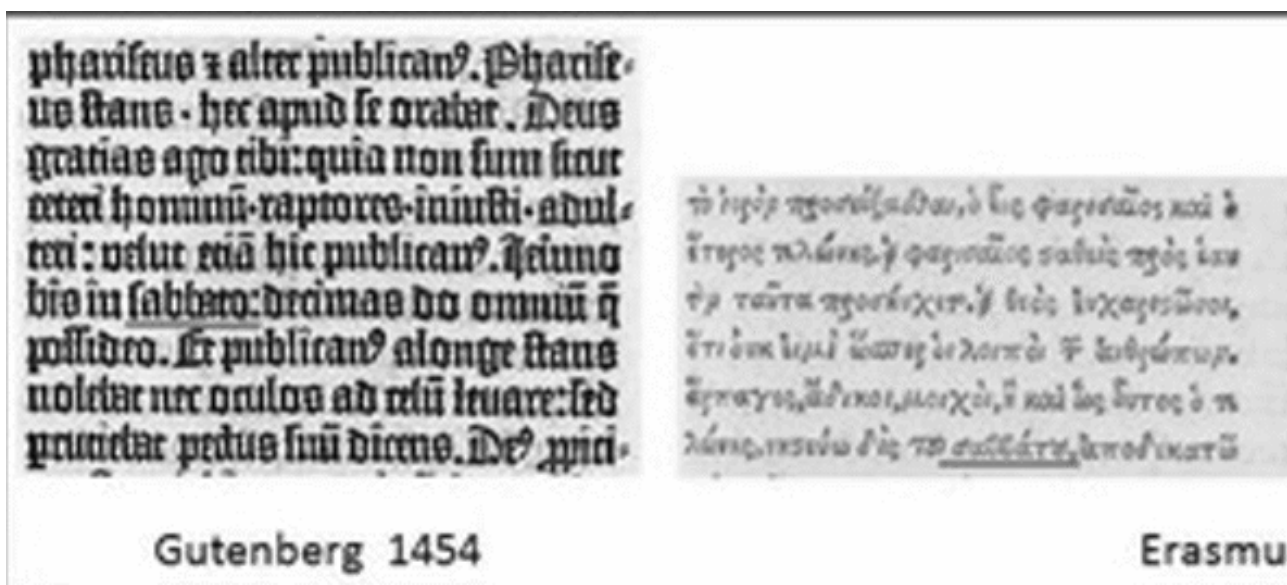 phariseus ⁊ alter publicanꝰ. Pharise-
us stans · hec apud se orabat. Deus
gracias ago tibi: quia non sum sicut
ceteri hominū · raptores · iniusti · adul-
teri: velut eciā hic publicanꝰ. Jeiuno
bis in sabbato: decimas do omniū q̄
possideo. Et publicanꝰ alonge stans
nolebat nec oculos ad celū levare: sed
percutiebat pectus suū dicens. Deꝰ ꝓpici-
τὸ ἱερὸν προσεύξασθαι, ὁ εἷς φαρισαῖος καὶ ὁ
ἕτερος τελώνης. ὁ φαρισαῖος σταθεὶς πρὸς ἑαυ
τὸν ταῦτα προσηύχετο. ὁ θεὸς εὐχαριστῶ σοι,
ὅτι οὐκ εἰμὶ ὥσπερ οἱ λοιποὶ τῶν ἀνθρώπων.
ἅρπαγες, ἄδικοι, μοιχοὶ, ἢ καὶ ὡς οὗτος ὁ τε
λώνης, νηστεύω δὶς τοῦ σαββάτου, ἀποδεκατῶ
Gutenberg 1454
Erasmu